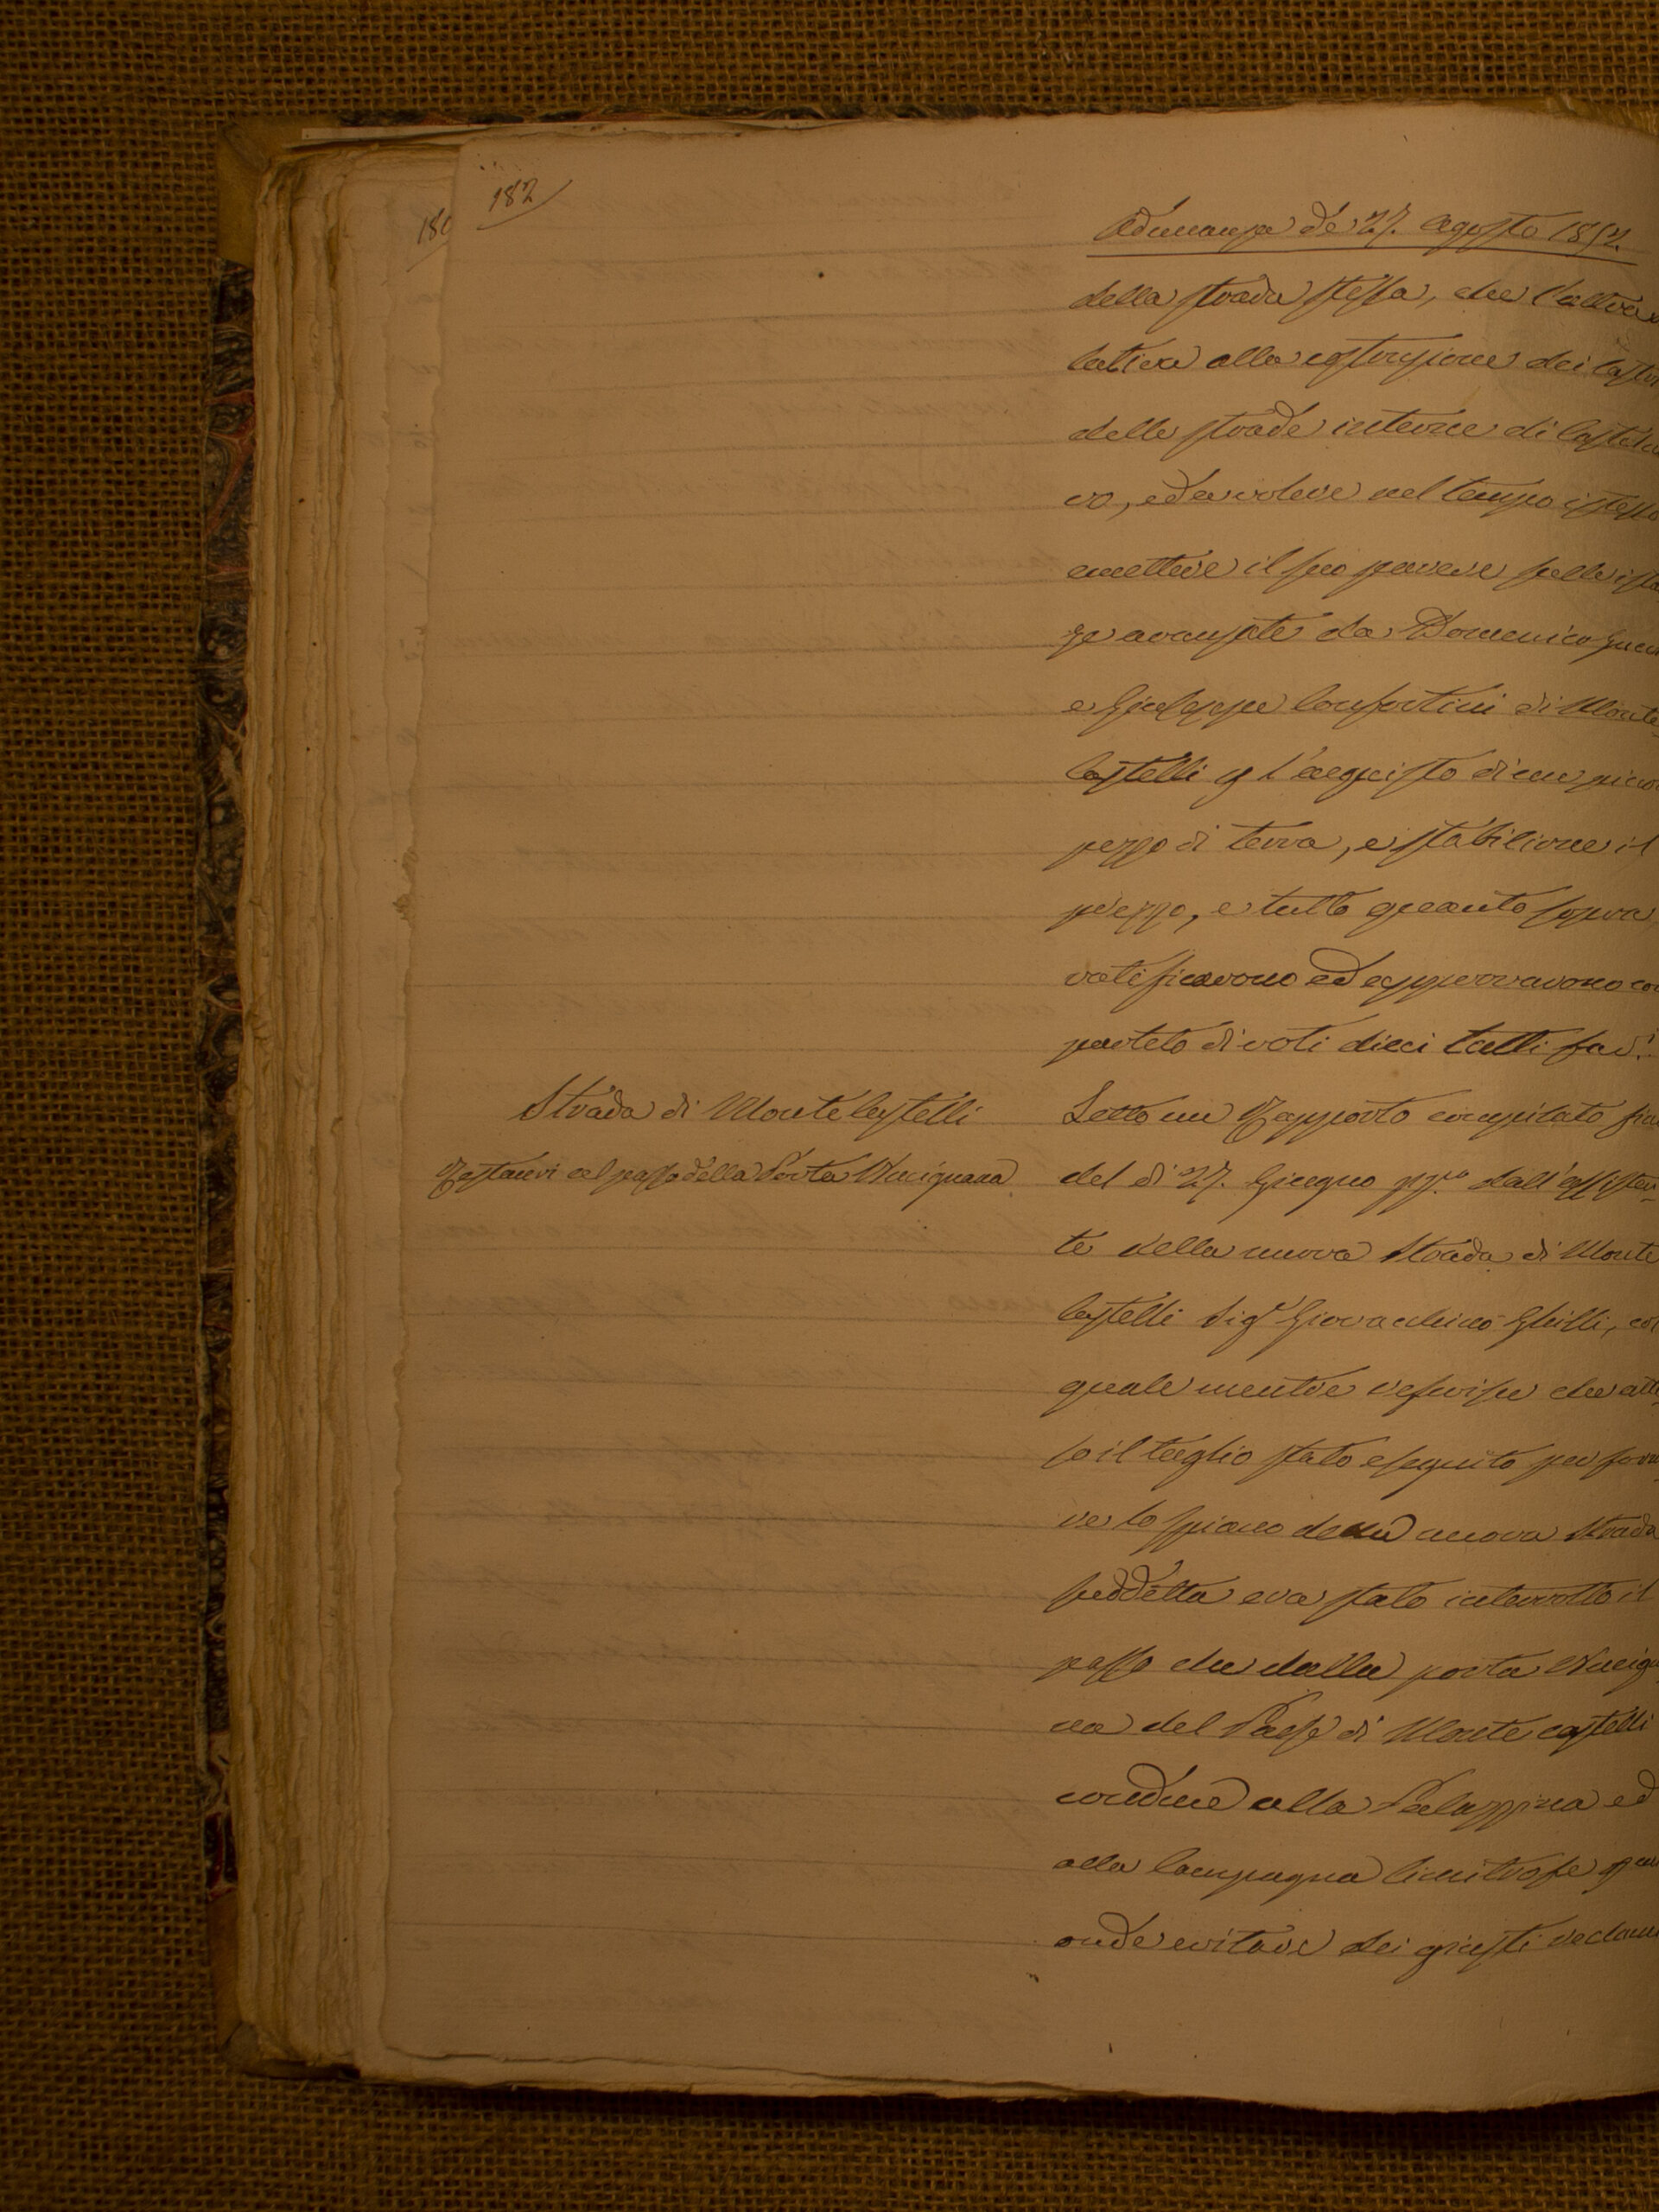 182
180
Adunanza de 27. Agosto 1852.
della strada stessa, che l'altra
lativa alla costruzione dei lastri
delle strade interne di Casteln
vo, ed a volere nel tempo istesso
emettere il suo parere sulle ista
ze avanzate da Domenico
e Giuseppe Confortini di Monte
Castelli p l'acquisto di un picco
pezzo di terra, e stabilirne il
prezzo, e tutto quanto sopra
ratificarono ed approvarono con
partito di voti dieci tutti fav:
Strada di Monte Castelli
Restauri al passo della Porta
Letto un Rapporto compilato fin
del dì 27. Giugno pp.º dall'assisten-
te della nuova Strada di Monte
Castelli Sigr Giovacchino Ghilli, col
quale mentre referisce che atte
so il taglio stato eseguito per forma
re lo spiano della nuova Strada
suddetta era stato interrotto il
passo che dalla porta
na del Paese di Monte castelli
conduce alla Palazzina ed
alla Campagna limitrofe
onde evitare dei giusti reclami